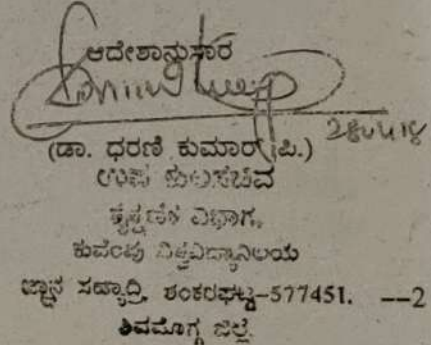 ಆದೇಶಾನುಸಾರ
(ಡಾ. ಧರಣಿ ಕುಮಾರ್ ಪಿ.)
ಉಪ ಕುಲಸಚಿವ
ಶೈಕ್ಷಣಿಕ ವಿಭಾಗ,
ಕುವೆಂಪು ವಿಶ್ವವಿದ್ಯಾನಿಲಯ
ಜ್ಞಾನ ಸಹ್ಯಾದ್ರಿ, ಶಂಕರಘಟ್ಟ-577451. --2
ಶಿವಮೊಗ್ಗ ಜಿಲ್ಲೆ.